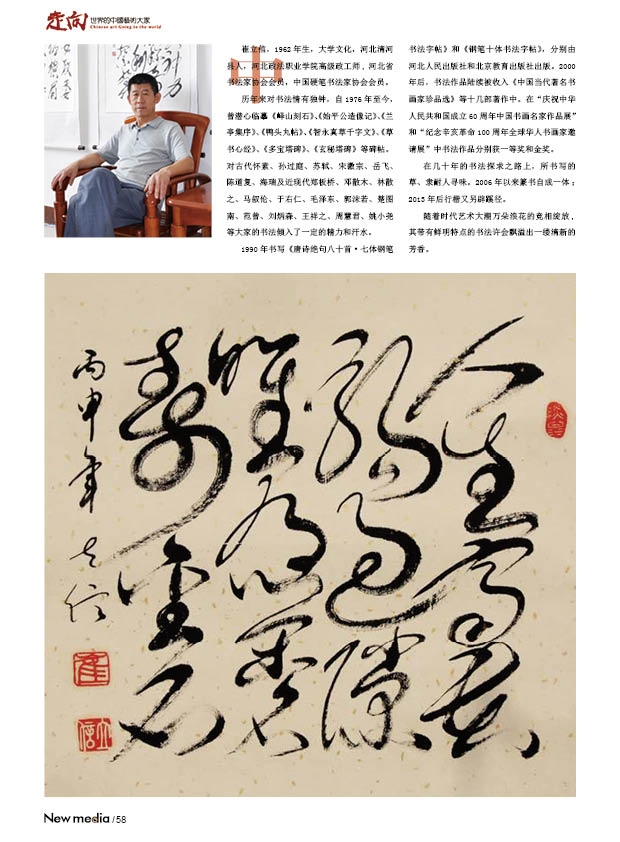 走向世界的中國藝術大家
Chinese art Going to the world
中
崔立信，1962年生，大学文化，河北清河
县人，河北政法职业学院高级政工师，河北省
书法家协会会员，中国硬笔书法家协会会员。
历年来对书法情有独钟，自1976年至今，
曾潜心临摹《峄山刻石》、《始平公造像记》、《兰
亭集序》、《鸭头丸帖》、《智永真草千字文》、《草
书心经》、《多宝塔碑》、《玄秘塔碑》等碑帖。
对古代怀素、孙过庭、苏轼、宋徽宗、岳飞、
陈道复、海瑞及近现代郑板桥、邓散木、林散
之、马叙伦、于右仁、毛泽东、郭沫若、楚图
南、范曾、刘炳森、王祥之、周慧珺、姚小尧
等大家的书法倾入了一定的精力和汗水。
1990年书写《唐诗绝句八十首·七体钢笔
书法字帖》和《钢笔十体书法字帖》，分别由
河北人民出版社和北京教育出版社出版。2000
年后，书法作品陆续被收入《中国当代著名书
画家珍品选》等十几部著作中。在“庆祝中华
人民共和国成立60周年中国书画名家作品展”
和“纪念辛亥革命100周年全球华人书画家邀
请展”中书法作品分别获一等奖和金奖。
在几十年的书法探求之路上，所书写的
草、隶耐人寻味。2006年以来篆书自成一体；
2013年后行楷又另辟蹊径。
随着时代艺术大潮万朵浪花的竞相绽放，
其带有鲜明特点的书法许会飘溢出一缕清新的
芳香。
人生富贵
驹过隙
唯有荣名
寿金石
丙申年立信
崔
立信
New media / 58